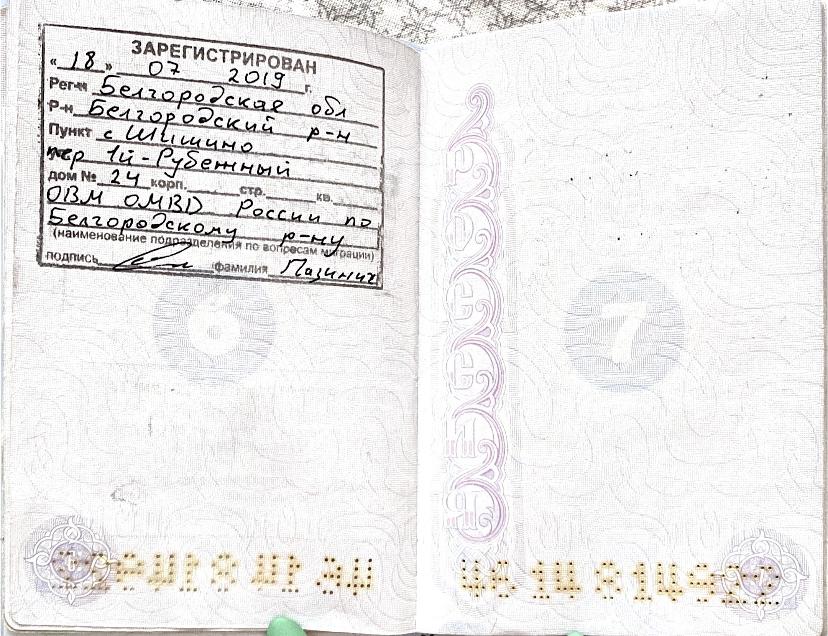 ЗАРЕГИСТРИРОВАН
«18» 07 2019 г.
Рег-н Белгородская обл
Р-н Белгородский р-н
Пункт с Шишино
пер 1й-Рубежный
дом № 24 корп. стр. кв.
ОВМ ОМВD России по
Белгородскому р-ну
(наименование подразделения по вопросам миграции)
подпись фамилия
6
7